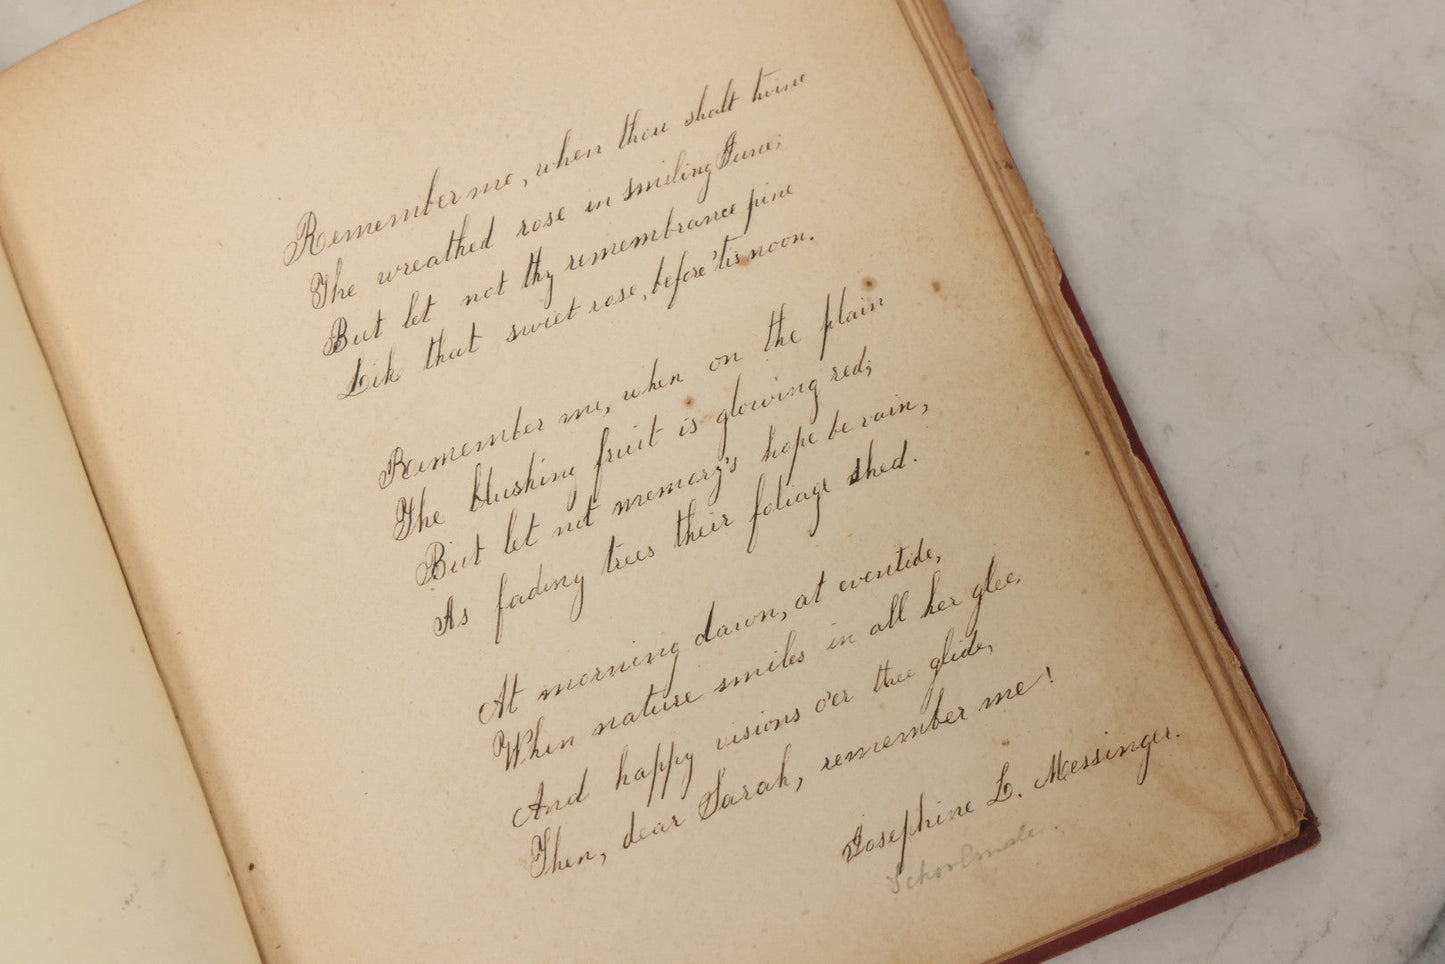 Remember me, when thou shalt twine
The wreathed rose in smiling June;
But let not thy remembrance pine
Lik that sweet rose, before 'tis noon.
Remember me, when on the plain
The blushing fruit is glowing red;
But let not memory's hope be vain,
As fading trees their foliage shed.
At morning dawn, at eventide,
When nature smiles in all her glee,
And happy visions o'er thee glide,
Then, dear Sarah, remember me!
Josephine L. Messinger.
Schoolmate.